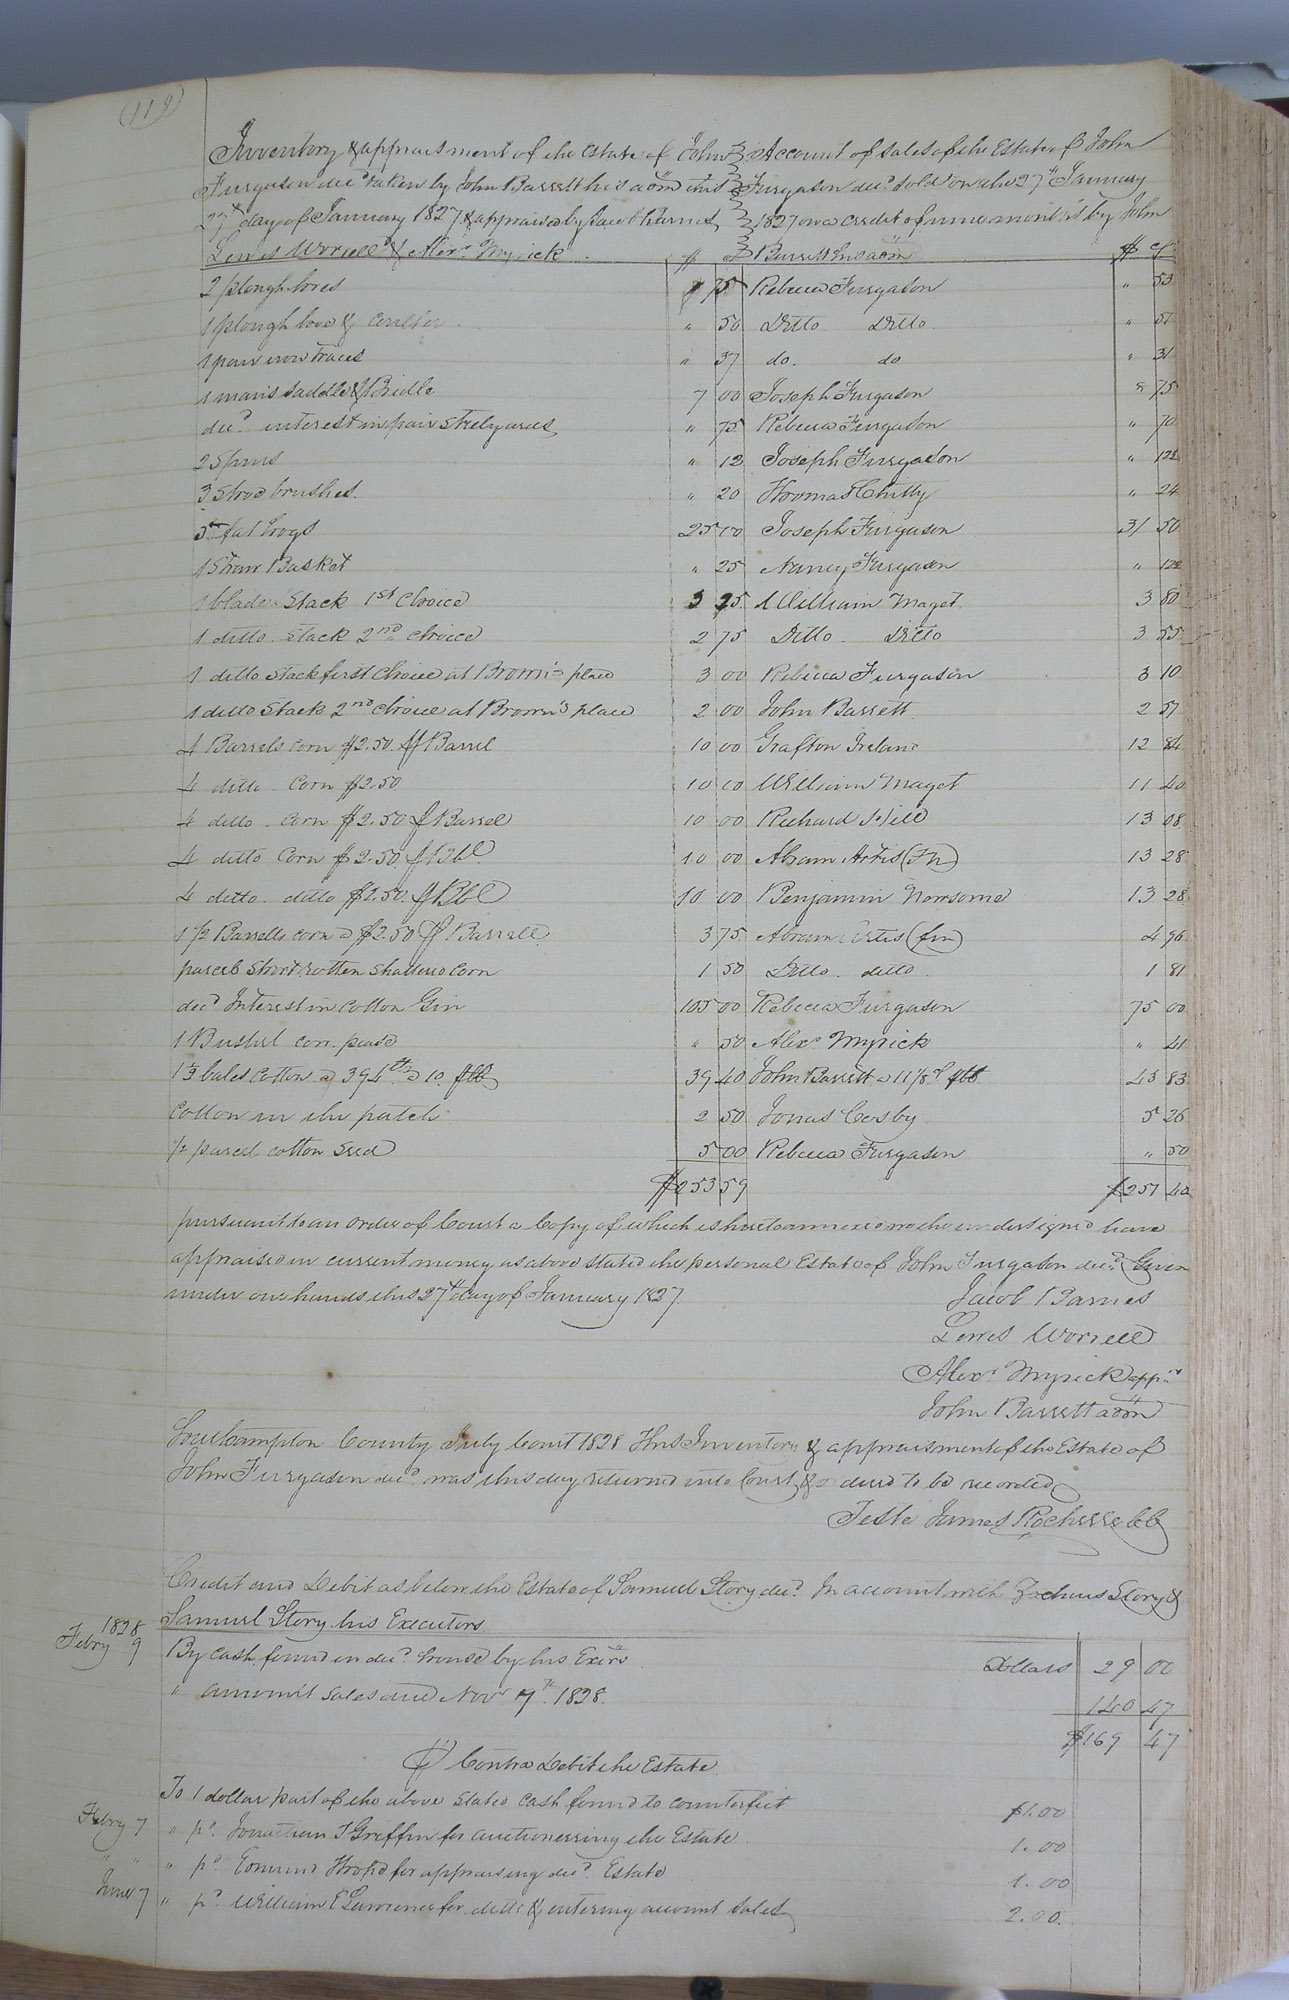 (118)
Inventory & appraisment of the Estate of John
Furgason decd taken by John Barrett his adm this
27th day of January 1827 & appraised by Jacob Barnes
Lewis Worrell & Alexr Myrick
Account of sales of the Estate of John
Furgason decd sold on the 27th January
1827 on a credit of nine months by John
Barrett his adm $ cts
2 plough hoes 75 Rebecca Furgason " 53
1 plough hoe & coulter " 50 Ditto Ditto " 51
1 pair iron traces " 37 do. do " 31
1 man's saddle & Bridle 7 00 Joseph Furgason 8 75
decd interest in pair Steelyards " 75 Rebecca Furgason " 70
2 Spurs " 12 Joseph Furgason " 12½
3 Shoe brushes " 20 Thomas Chitty " 24
5 fat hogs 25 00 Joseph Furgason 31 50
1 Straw Basket " 25 Nancy Furgason " 12½
1 blade Stack 1st Choice 3 25 William Maget 3 80
1 ditto Stack 2nd choice 2 75 Ditto Ditto 3 55
1 ditto stack first choice at Brown's place 3 00 Rebecca Furgason 3 10
1 ditto Stack 2nd choice at Brown's place 2 00 John Barrett 2 57
4 Barrels corn $2.50 ⅌ Barrel 10 00 Grafton Ireland 12 84
4 ditto Corn $2.50 10 00 William Maget 11 40
4 ditto corn $2.50 ⅌ Barrel 10 00 Richard Hill 13 08
4 ditto Corn $2.50 ⅌ Bbl 10 00 Abram Artis (fn) 13 28
4 ditto ditto $2.50 ⅌ Bbl 10 00 Benjamin Newsome 13 28
1 1/2 Barrells corn a $2.50 ⅌ Barrell 3 75 Abram Artis (fn) 4 96
parcel short rotten shattered corn 1 50 Ditto ditto 1 81
decd Interest in Cotton Gin 105 00 Rebecca Furgason 75 00
1 Bushel corn pease " 50 Alexr Myrick " 41
bales Cotton a 394 lb a 10 ⅌ lb 39 40 John Barrett a 11 1/8 ⅌ lb 43 83
Cotton in the patch 2 50 Jonas Cosby 5 26
1/2 parcel cotton Seed 5 00 Rebecca Furgason " 50
$253 59 $251 40
pursuant to an order of Court a Copy of which is hereto annexed we the undersigned have
appraised in current money as above stated the personal Estate of John Furgason decd Given
under our hands this 27th day of January 1827.
Jacob Barnes
Lewis Worrell
Alexr Myrick apprs
John Barrett adm
Southampton County July Court 1828 This Inventory & appraisment of the Estate of
John Furgason decd was this day returned into Court & ordered to be recorded
Teste James Rochelle CC
Credit and Debit as below the Estate of Samuel Story decd In account with Zacheus Story &
Samuel Story his Executors
1828
Febry 9 By cash found in decd house by his Exors Dollars 29 00
" amount sales due Novr 7th 1828. 140 47
$169 47
⅌ Contra Debit the Estate
To 1 dollar part of the above stated cash found to counterfeit $1.00
Febry 7 " pd. Jonathan T Griffin for auctioneering the Estate 1.00
" " " pd. Edmund for appraising decd Estate 1.00
June 7 " pd. William E Lawrence for ditto & entering account sales 2.00.